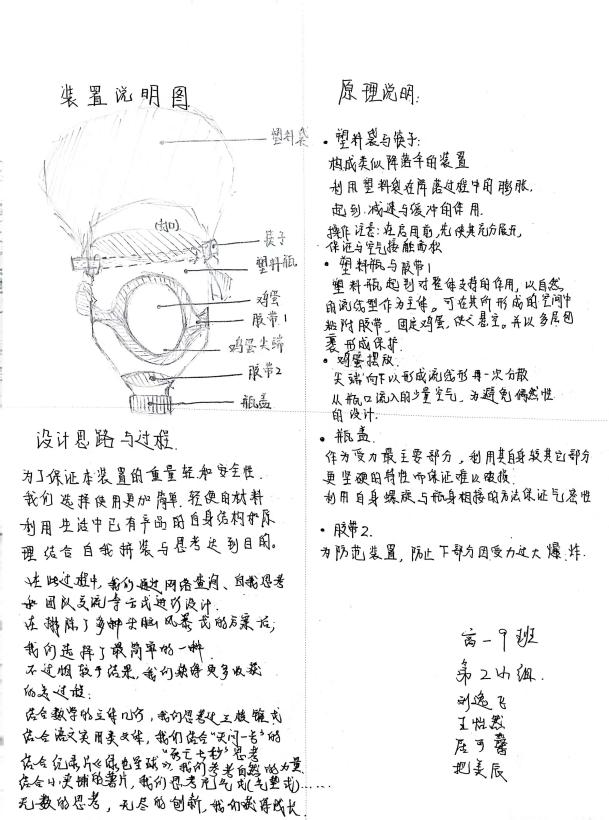 装置说明图
塑料袋
(切口)
筷子
塑料瓶
鸡蛋
胶带1
鸡蛋尖端
胶带2
瓶盖
设计思路与过程
为了保证本装置的重量轻和安全性.
我们选择使用更加简单.轻便的材料
利用生活中已有产品的自身结构和原
理结合自我拼装与思考达到目的。
在此过程中,我们通过网络查阅、自我思考
和团队交流等方式进行设计.
在排除了多种头脑风暴式的方案后,
我们选择了最简单的一种.
不过相较于结果,我们获得更多收获
的是过程:
结合数学的立体几何,我们思考过三棱锥式
结合语文实用类文体,我们结合"天问一号"的
"死亡七秒"思考
结合纪录片《绿色星球》,我们参考自然的力量
结合小卖铺的薯片,我们思考充气式(气垫式)……
无数的思考,无尽的创新,我们获得成长.
原理说明:
• 塑料袋与筷子:
构成类似降落伞的装置
利用塑料袋在降落过程中的膨胀,
起到减速与缓冲的作用.
操作注意:在启用前,先使其充分展开,
保证与空气接触面积
• 塑料瓶与胶带1
塑料瓶起到对整体支持的作用,以自然
的流线型作为主体。可在其所形成的空间中
黏附胶带,固定鸡蛋,使之悬空。并以多层包
裹形成保护.
• 鸡蛋摆放.
尖端向下以形成流线形再一次分散
从瓶口流入的少量空气,为避免偶然性
的设计.
• 瓶盖.
作为受力最主要部分,利用其自身较其它部分
更坚硬的特性而保证难以破损.
利用自身螺旋与瓶身相接的方法保证气密性
• 胶带2.
为防范装置,防止下部分因受力过大爆炸.
高一9班
第2小组.
刘逸飞
王怡然
屈可馨
把美辰